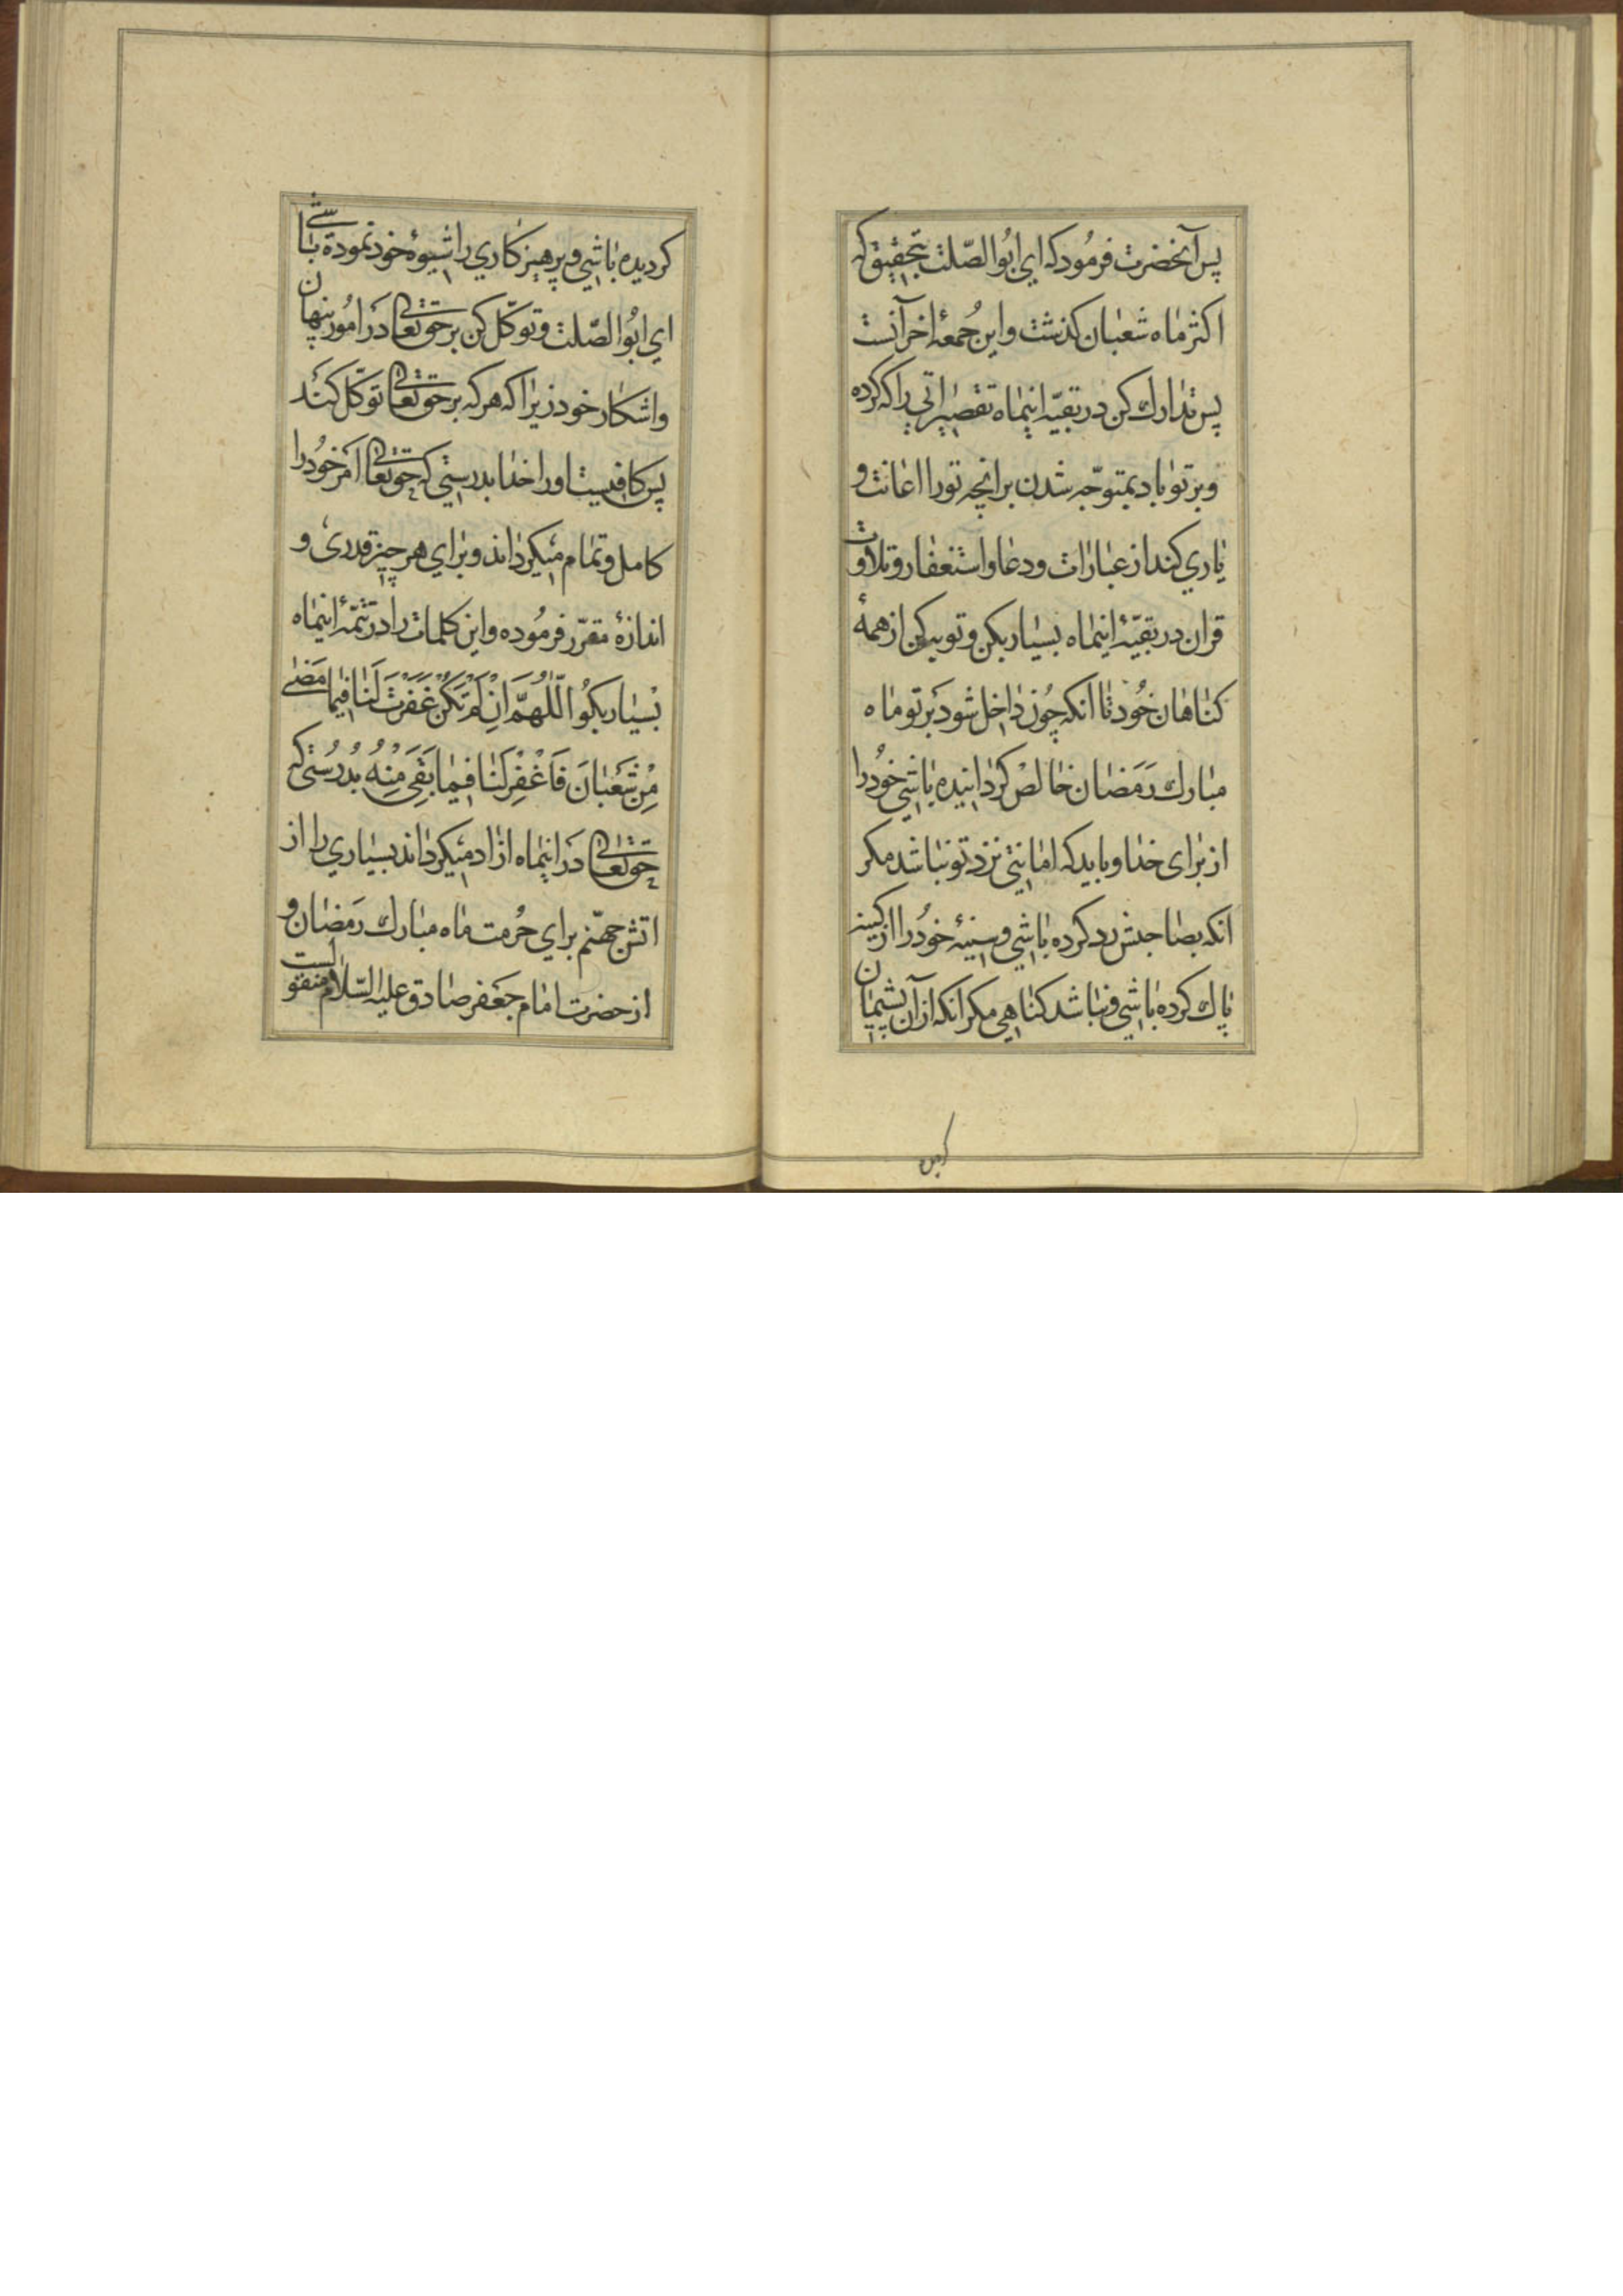 پس آنحضرت فرمُود که ای ابُوالصّلت بتحقیق که
اکثر ماه شعبان کذشت و این جُمعهٔ اخر آنست
پس تدارك کن در بقیّهٔ اینماه تقصیراتی را که کرده
و بر تو باد بمتوجّه شدن بر انچه تو را اعانت و
یاری کند از عبارات و دعا و استغفار و تلاوت
قران در بقیّهٔ اینماه بسیار بکن و توبه کن از همهٔ
کناهان خُود تا انکه چُون داخل شود بَر تو ماه
مبارك رَمَضان خالصْ کردانیده باشی خُود را
از برای خدا و باید که امانتی نزد تو نباشد مکر
انکه بصاحبش رد کرده باشی و سینهٔ خُود را از کینه
پاك کرده باشی و نباشد کناهی مکر انکه از آن پشیمان
کردیده
کردیده باشی و پرهیز کاری را شیوهٔ خود نموده باشی
ای ابُوالصّلت و توکّل کن بر حقتعالی دَر امُور پنهان
و اشکار خود زیرا که هر که بر حقتعالی توکّل کند
پس کافیست او را خدا بدرستی که حقتعالی اَمر خُود را
کامل و تمام میکرداند و برای هر چیز قدری و
اندازهٔ مقرّر فرمُوده و این کلمات را در تتمّهٔ اینماه
بسْیار بکُو اَللّٰهُمَّ اِنْ لَمْ تَکُنْ غَفَرْتَ لَنا فیما مَضٰی
مِنْ شَعْبانَ فَاغْفِرْ لَنا فیما بَقِیَ مِنْهُ بدُرُستی که
حقتعالی دَر اینماه ازاد میکرداند بسیاری را از
اتش جهنّم برای حُرمت ماه مبارك رَمَضان و
از حضرت امام جَعفر صادق علیه السّلام منقولست